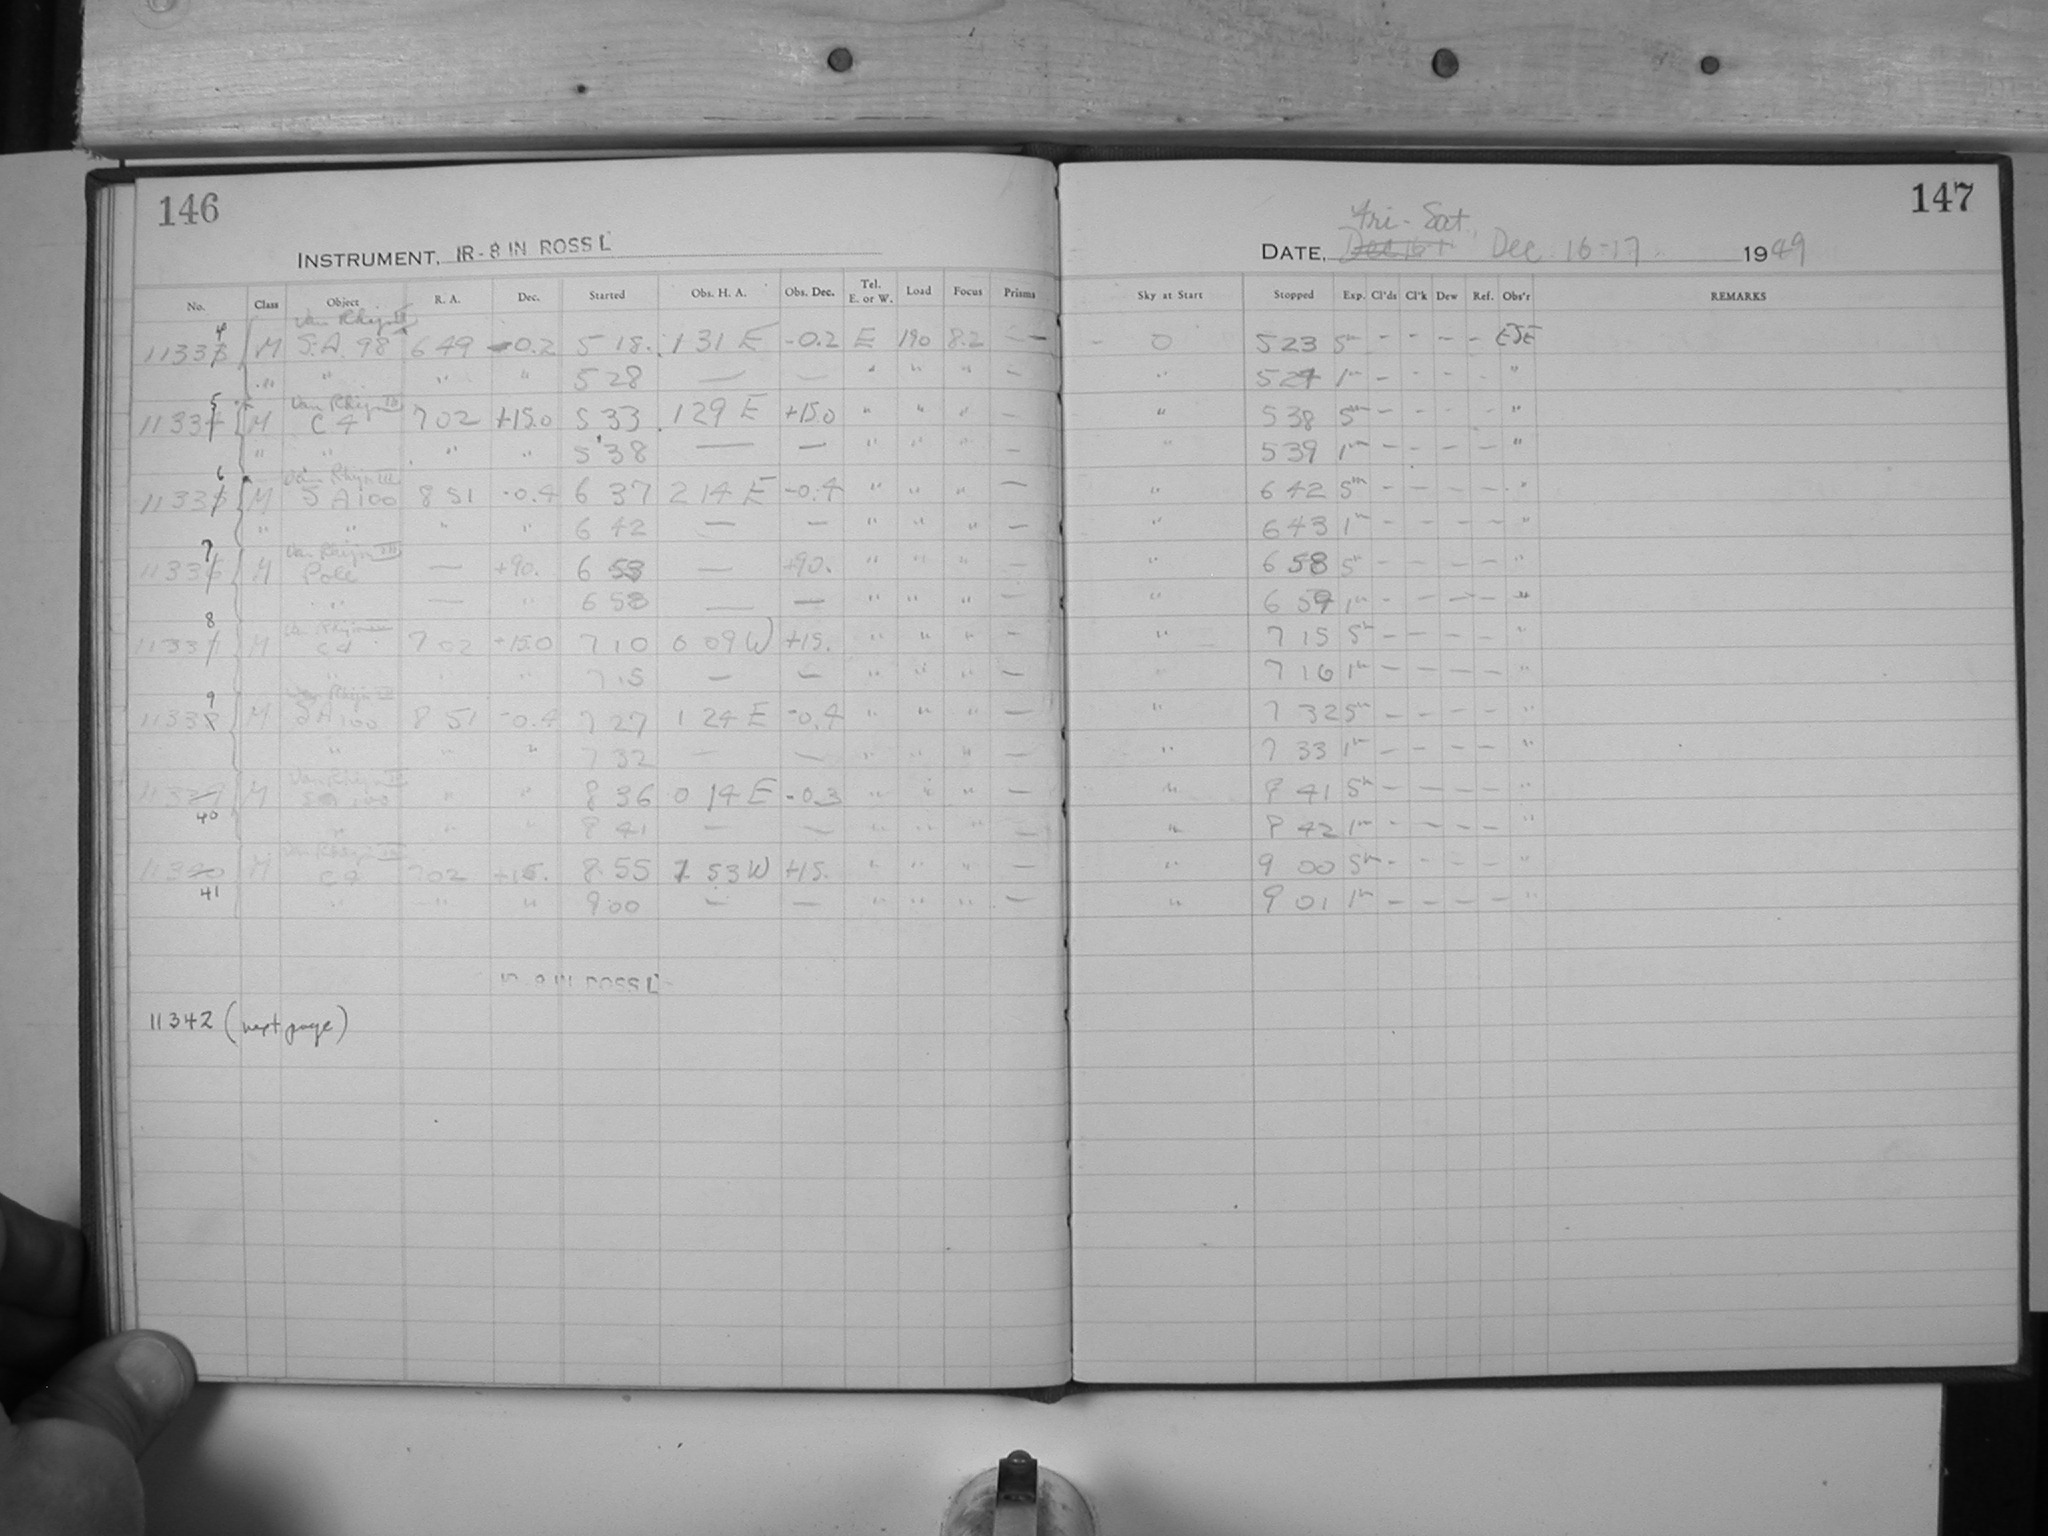 146
INSTRUMENT, IR-8 IN ROSS L
No. Class Object R. A. Dec. Started Obs. H. A. Obs. Dec. Tel. E. or W. Load Focus Prisms
Van Rhijn III
11333 4 M S.A. 98 6 49 -0.2 5 18. 1 31 E -0.2 E 190 8.2 — —
" " " " 5 28 — — " " " —
Van Rhijn III
11334 5 M C 4 7 02 +15.0 5 33 1 29 E +15.0 " " " —
" " " " 5 38 — — " " " —
Van Rhijn III
11335 6 M S A 100 8 51 -0.4 6 37 2 14 E -0.4 " " " —
" " " " 6 42 — — " " " —
Van Rhijn III
11336 7 M Pole — +90. 6 53 — +90. " " " —
" — " 6 58 — — " " " —
Van Rhijn
11337 8 M C4 7 02 +15.0 7 10 0 09 W +15. " " " —
" " " 7 15 — — " " " —
Van Rhijn III
11338 9 M S A 100 8 51 -0.4 7 27 1 24 E -0.4 " " " —
" " " 7 32 — — " " " —
Van Rhijn III
11339 40 M SA 100 " " 8 36 0 14 E -0.3 " " " —
" " " 8 41 — — " " " —
Van Rhijn III
11340 41 M C4 7 02 +15. 8 55 1 53 W +15. " " " —
" " " 9 00 — — " " " —
ROSS L
11342 (next page)
147
Fri - Sat.
DATE, Dec 16-17 Dec. 16-17. 1949
Sky at Start Stopped Exp. Cl'ds Cl'k Dew Ref. Obs'r REMARKS
0 5 23 5m - - - - EJE
" 5 29 1m - - - - "
" 5 38 5m - - - - "
" 5 39 1m - - - - "
" 6 42 5m - - - - "
" 6 43 1m - - - - "
" 6 58 5m - - - - "
" 6 59 1m - - - - "
" 7 15 5m - - - - "
7 16 1m - - - - "
" 7 32 5m - - - - "
" 7 33 1m - - - - "
" 8 41 5m - - - - "
" 8 42 1m - - - - "
" 9 00 5m - - - - "
" 9 01 1m - - - - "